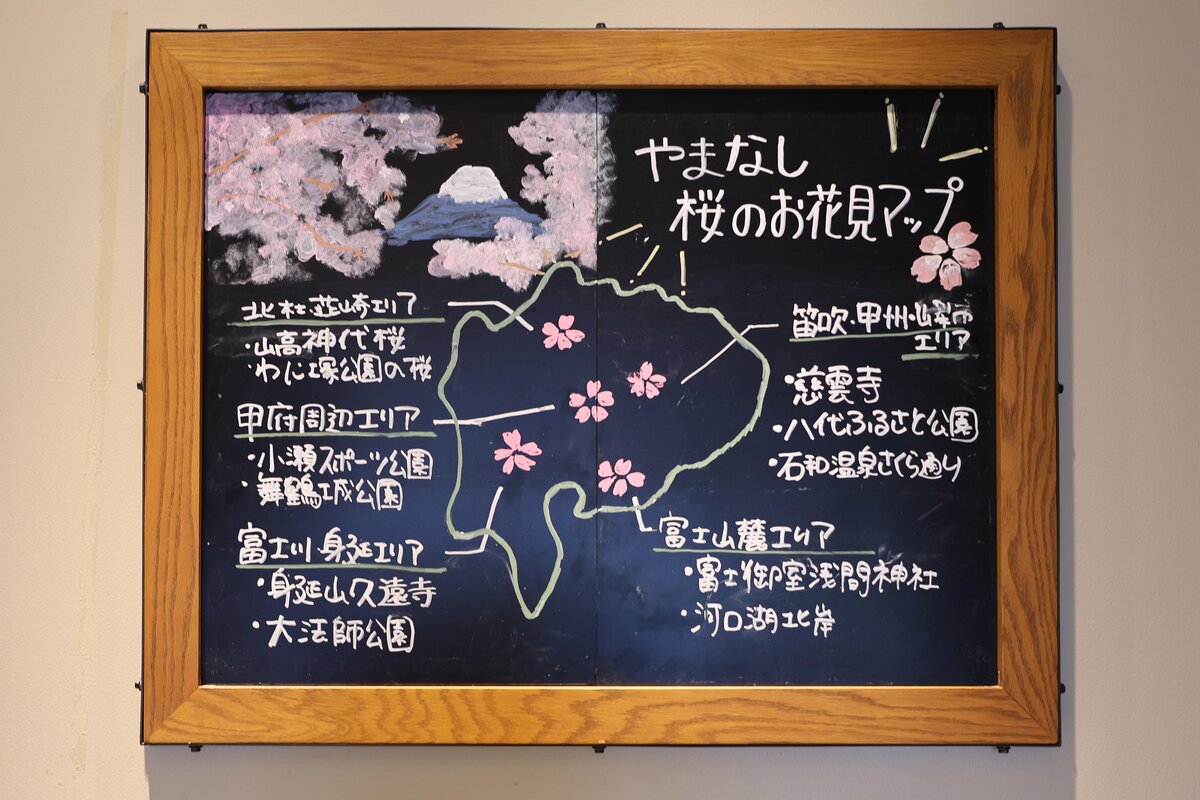 やまなし
桜のお花見マップ
北杜・韮崎エリア
・山高神代桜
・わに塚公園の桜
甲府周辺エリア
・小瀬スポーツ公園
・舞鶴城公園
富士川・身延エリア
・身延山久遠寺
・大法師公園
笛吹・甲州・山梨市
エリア
・慈雲寺
・八代ふるさと公園
・石和温泉さくら通り
富士山麓エリア
・富士御室浅間神社
・河口湖北岸